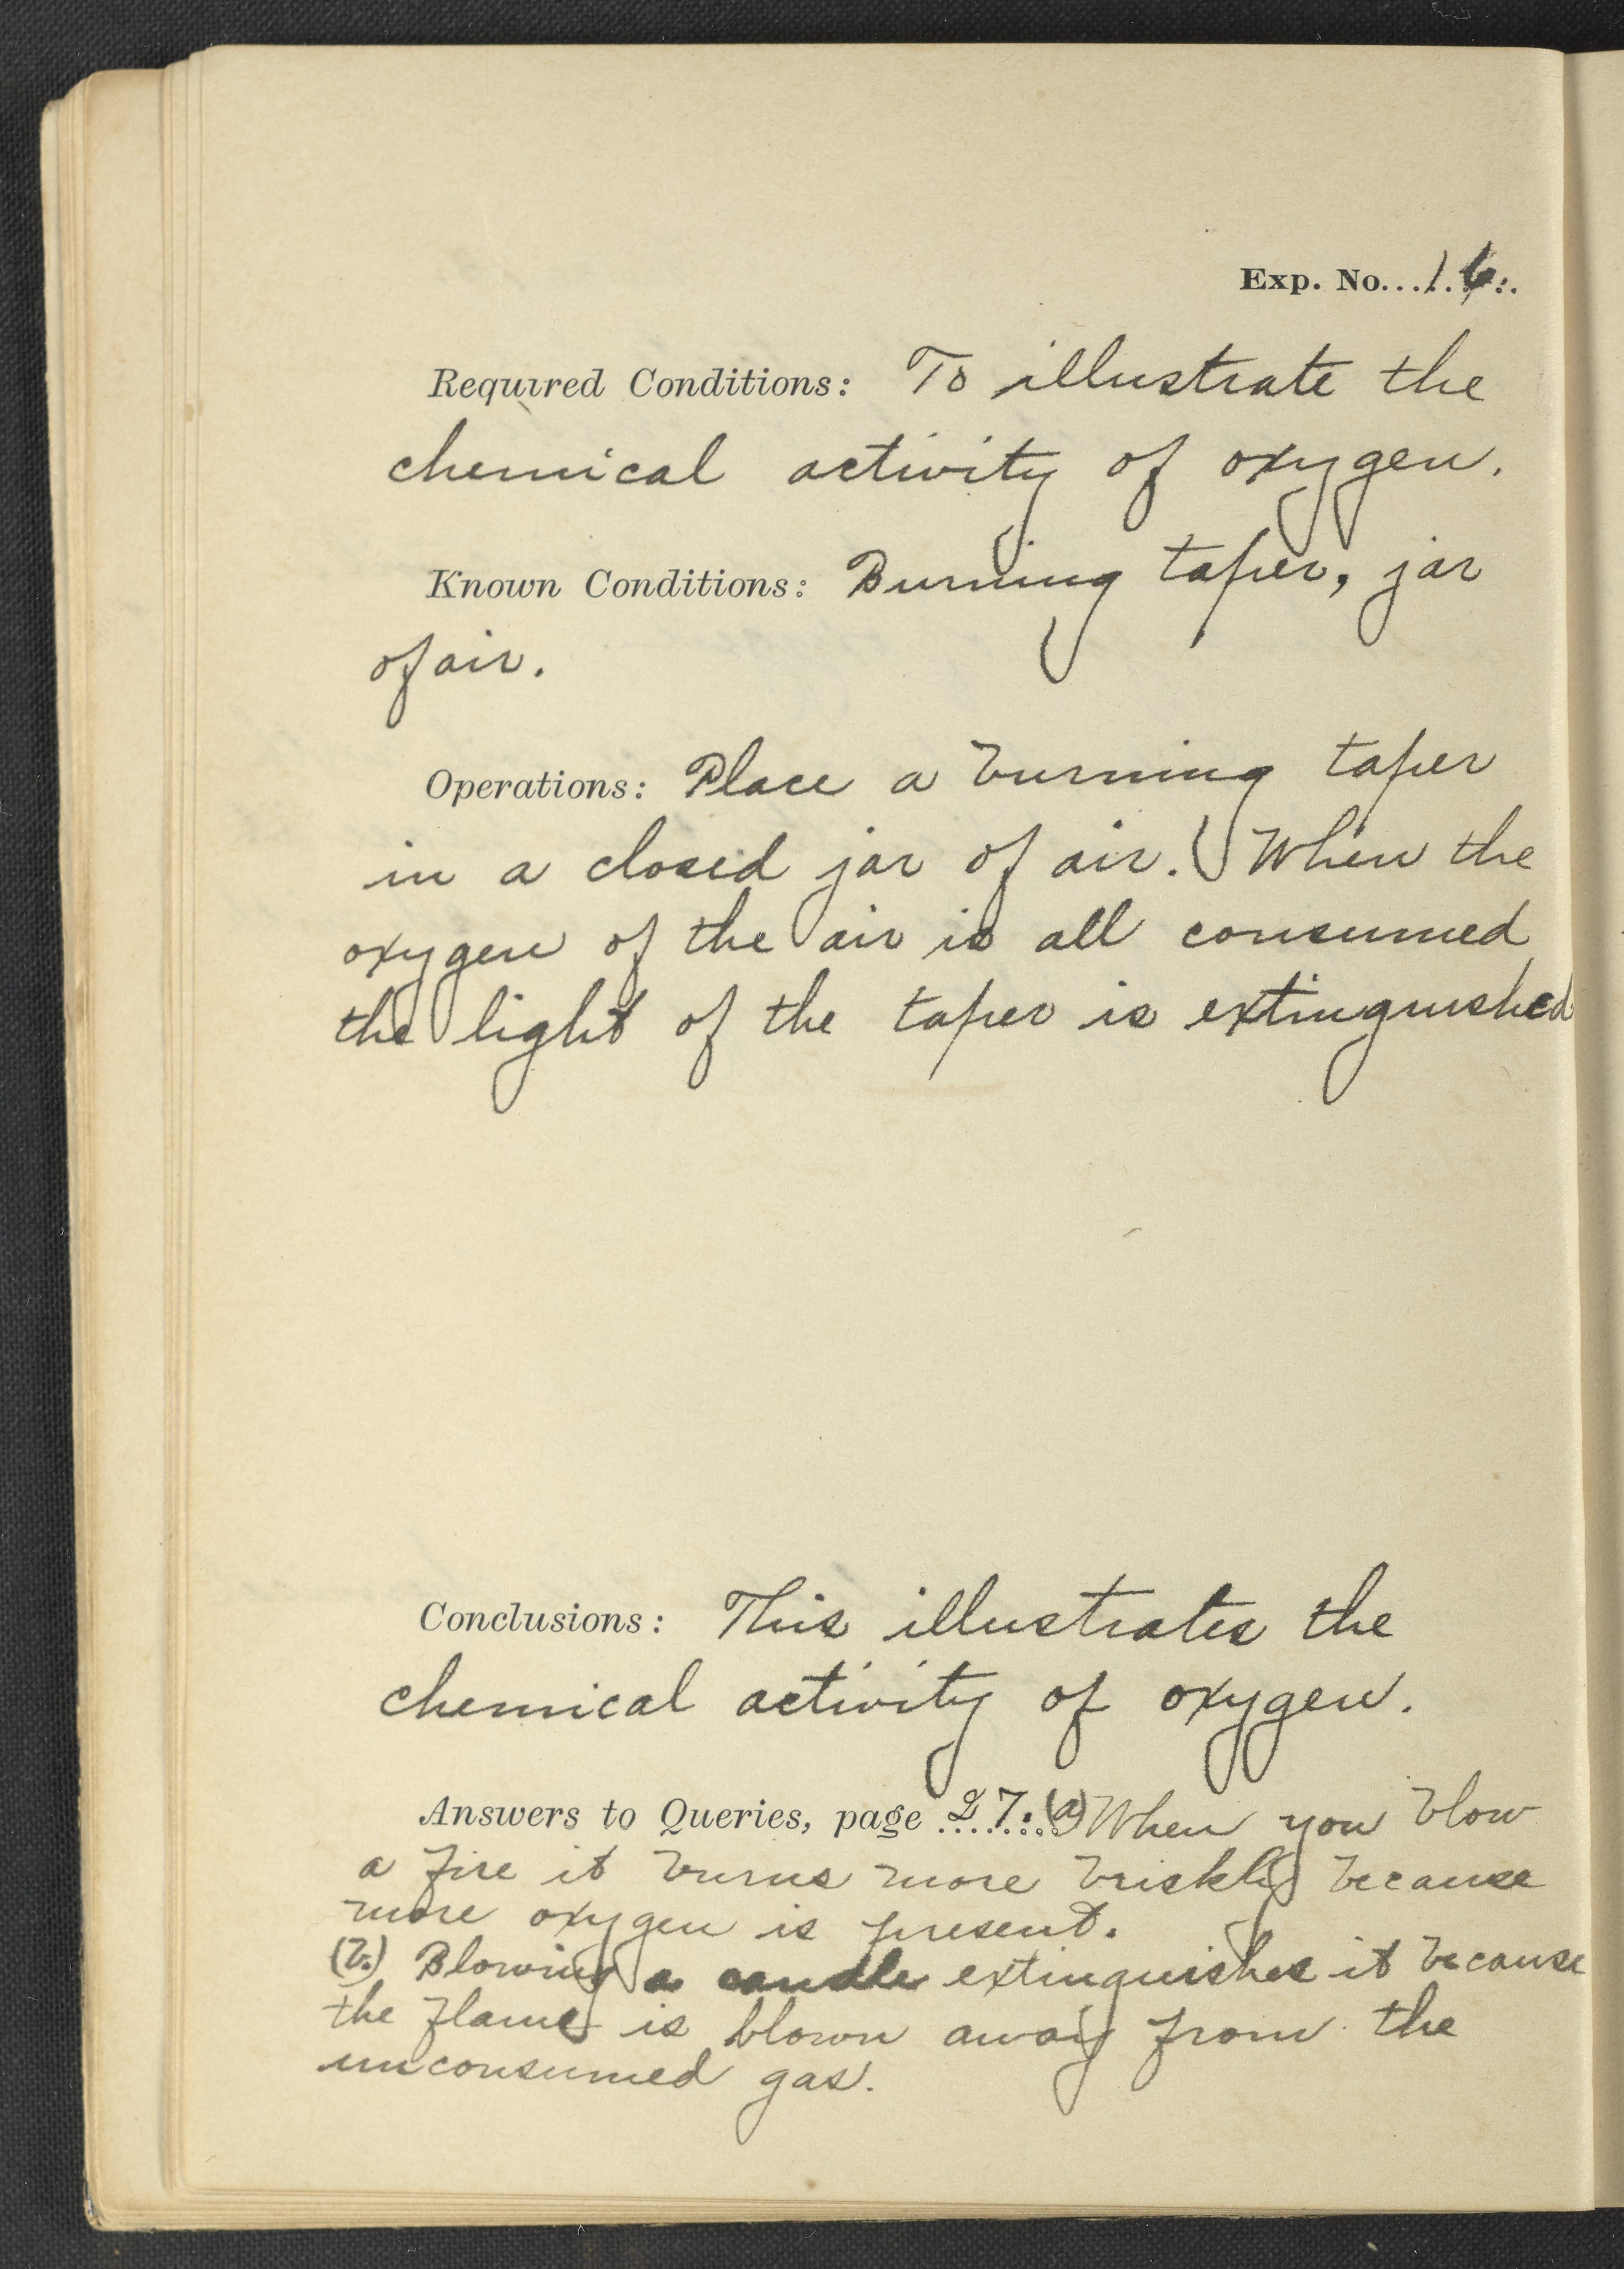 Exp. No...16..
Required Conditions: To illustrate the
chemical activity of oxygen.
Known Conditions: Burning taper, jar
of air.
Operations: Place a burning taper
in a closed jar of air. When the
oxygen of the air is all consumed
the light of the taper is extinguished
Conclusions: This illustrates the
chemical activity of oxygen.
Answers to Queries, page 27: (a) When you blow
a fire it burns more briskly because
more oxygen is present.
(b.) Blowing a candle extinguishes it because
the flame is blown away from the
unconsumed gas.